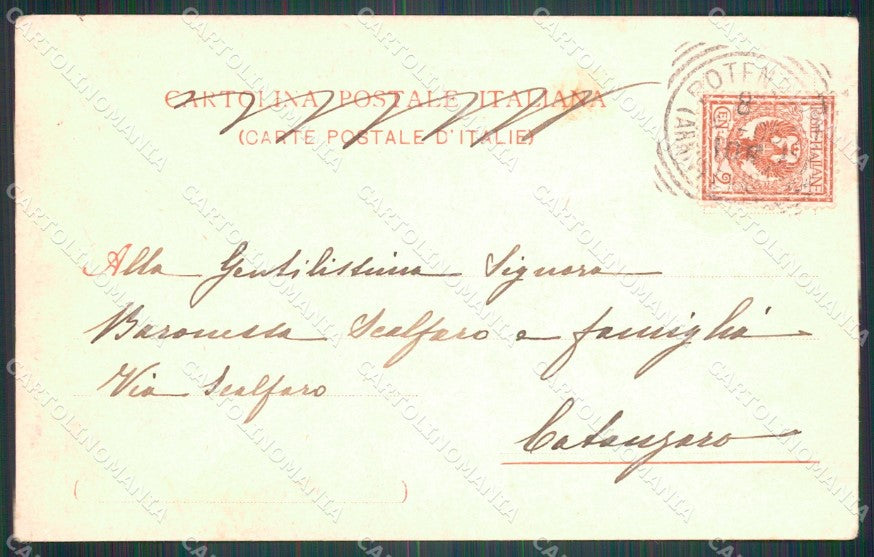 CARTOLINA POSTALE ITALIANA
(CARTE POSTALE D'ITALIE)
POTENZA
8
POSTE ITALIANE
CEN. 2
Alla Gentilissima Signora
Baronessa Scalfaro e famiglia
Via Scalfaro
Catanzaro
CARTOLINOMANIA